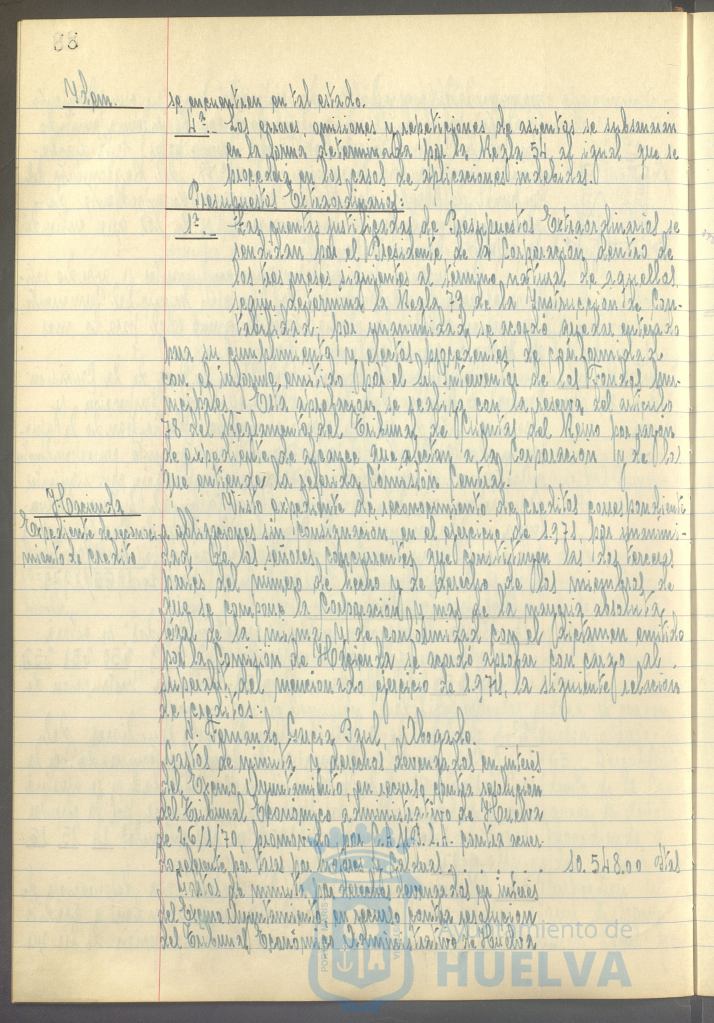 88
Idem.
se encuentren en tal estado.
4ª.- Los errores, omisiones y repeticiones de asientos se subsanarán
en la forma determinada por la Regla 54 al igual que se
procederá en los casos de aplicaciones indebidas.
Presupuestos Extraordinarios:
1ª.- Las cuentas justificadas de Presupuestos Extraordinarios se
rendirán por el Presidente de la Corporación dentro de
los tres meses siguientes al término natural de aquellos,
según determina la Regla 79 de la Instrucción de Con-
tabilidad; por unanimidad se acordó quedar enterado
para su cumplimiento y efectos procedentes de conformidad
con el informe emitido por el Sr. Interventor de los Fondos Mu-
nicipales. Esta aprobación se realiza con la reserva del artículo
78 del Reglamento del Tribunal de Cuentas del Reino por razón
de expediente de alcance que afectan a la Corporación y de los
que entiende la referida Comisión Central.
Hacienda
Expediente de reconoci-
miento de crédito
Visto expediente de reconocimiento de créditos correspondiente
a obligaciones sin consignación en el ejercicio de 1.971, por unanimi-
dad de los señores concurrentes que constituyen las dos terceras
partes del número de hecho y de derecho de los miembros de
que se compone la Corporación y más de la mayoría absoluta
legal de la misma y de conformidad con el dictamen emitido
por la Comisión de Hacienda se acordó aprobar con cargo al
del mencionado ejercicio de 1.971, la siguiente relación
de créditos:
D. Fernando García Paul, Abogado.
Gastos de minuta y derechos devengados en interés
del Excmo Ayuntamiento, en recurso contra resolución
del Tribunal Económico administrativo de Huelva
de 26/1/70, promovido por contra acuer-
do referente por tasas por . . . . . . . . 10.548,00 Ptas
Gastos de minuta por derechos devengados en interés
del Excmo Ayuntamiento, en recurso contra resolución
del Tribunal Económico Administrativo de Huelva
Ayuntamiento de
HUELVA